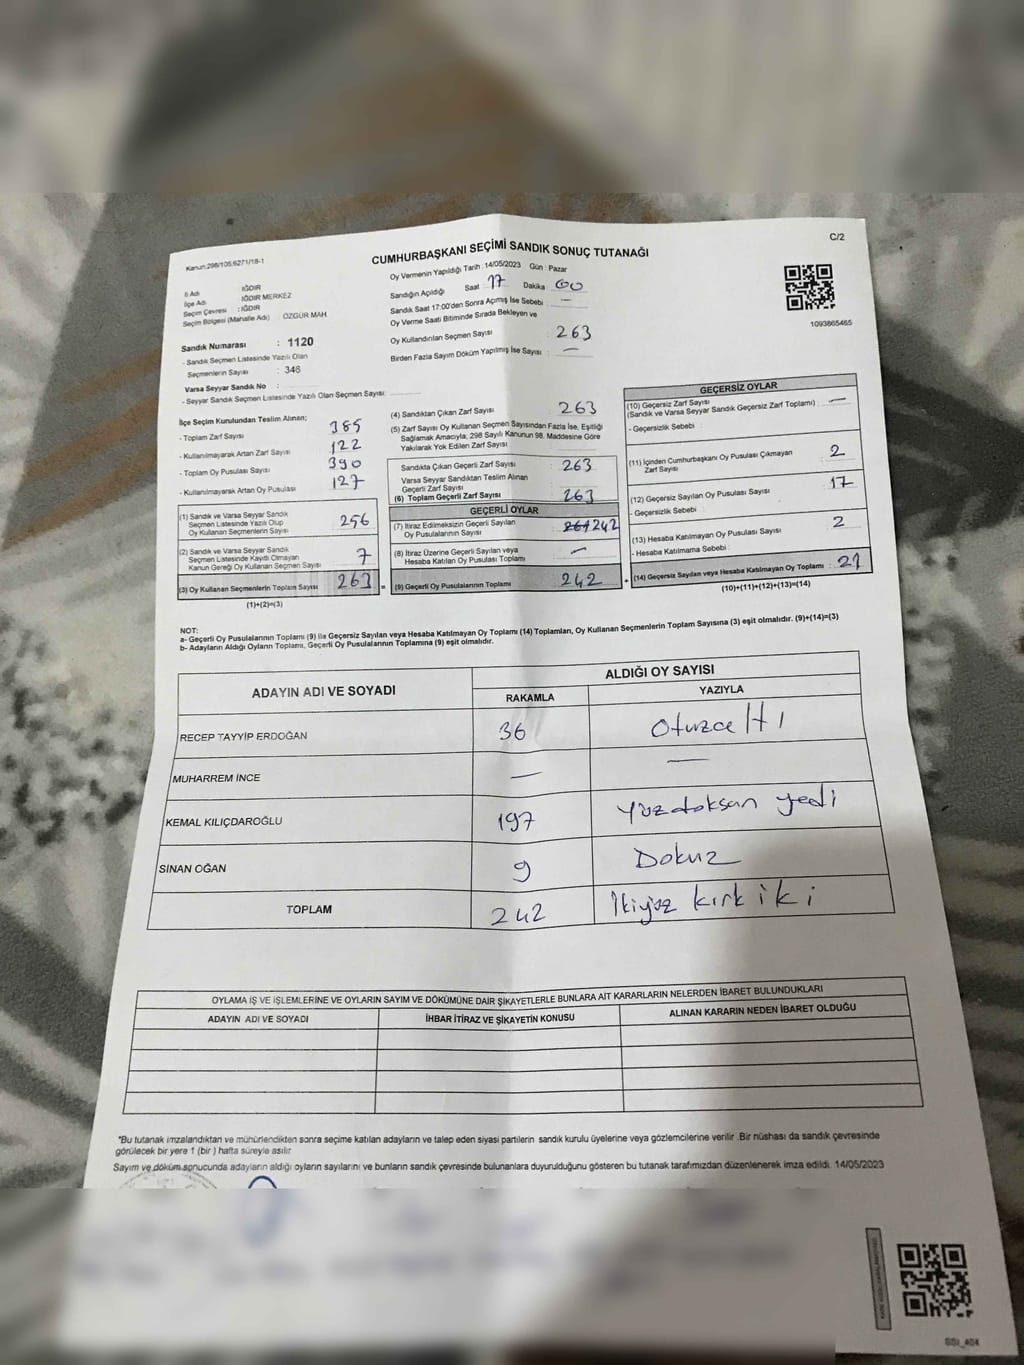 C/2
Kanun:298/105,6271/18-1
CUMHURBAŞKANI SEÇİMİ SANDIK SONUÇ TUTANAĞI
İl Adı IĞDIR
İlçe Adı IĞDIR MERKEZ
Seçim Çevresi : IĞDIR
Seçim Bölgesi (Mahalle Adı) ÖZGÜR MAH
Sandık Numarası : 1120
- Sandık Seçmen Listesinde Yazılı Olan
Seçmenlerin Sayısı : 346
Varsa Seyyar Sandık No :
- Seyyar Sandık Seçmen Listesinde Yazılı Olan Seçmen Sayısı:
Oy Vermenin Yapıldığı Tarih :14/05/2023 Gün : Pazar
Sandığın Açıldığı Saat 17 Dakika 00
Sandık Saat 17:00'den Sonra Açımış İse Sebebi —
Oy Verme Saati Bitiminde Sırada Bekleyen ve
Oy Kullandırılan Seçmen Sayısı 263
Birden Fazla Sayım Döküm Yapılmış İse Sayısı : —
1093865465
İlçe Seçim Kurulundan Teslim Alınan;
- Toplam Zarf Sayısı 385
- Kullanılmayarak Artan Zarf Sayısı 122
- Toplam Oy Pusulası Sayısı 390
- Kullanılmayarak Artan Oy Pusulası 127
(1) Sandık ve Varsa Seyyar Sandık
Seçmen Listesinde Yazılı Olup
Oy Kullanan Seçmenlerin Sayısı 256
(2) Sandık ve Varsa Seyyar Sandık
Seçmen Listesinde Kayıtlı Olmayan
Kanun Gereği Oy Kullanan Seçmen Sayısı 7
(3) Oy Kullanan Seçmenlerin Toplam Sayısı 263 =
(1)+(2)=(3)
(4) Sandıktan Çıkan Zarf Sayısı : 263
(5) Zarf Sayısı Oy Kullanan Seçmen Sayısından Fazla İse, Eşitliği
Sağlamak Amacıyla; 298 Sayılı Kanunun 98. Maddesine Göre
Yakılarak Yok Edilen Zarf Sayısı
Sandıkta Çıkan Geçerli Zarf Sayısı : 263
Varsa Seyyar Sandıktan Teslim Alınan
Geçerli Zarf Sayısı
(6) Toplam Geçerli Zarf Sayısı : 263
GEÇERLİ OYLAR
(7) İtiraz Edilmeksizin Geçerli Sayılan
Oy Pusulalarının Sayısı : 261 242
(8) İtiraz Üzerine Geçerli Sayılan veya
Hesaba Katılan Oy Pusulası Toplamı —
(9) Geçerli Oy Pusulalarının Toplamı 242 +
GEÇERSİZ OYLAR
(10) Geçersiz Zarf Sayısı
(Sandık ve Varsa Seyyar Sandık Geçersiz Zarf Toplamı) : —
- Geçersizlik Sebebi :
(11) İçinden Cumhurbaşkanı Oy Pusulası Çıkmayan
Zarf Sayısı 2
(12) Geçersiz Sayılan Oy Pusulası Sayısı : 17
- Geçersizlik Sebebi :
(13) Hesaba Katılmayan Oy Pusulası Sayısı : 2
- Hesaba Katılmama Sebebi :
(14) Geçersiz Sayılan veya Hesaba Katılmayan Oy Toplamı : 21
(10)+(11)+(12)+(13)=(14)
NOT:
a- Geçerli Oy Pusulalarının Toplamı (9) ila Geçersiz Sayılan veya Hesaba Katılmayan Oy Toplamı (14) Toplamları, Oy Kullanan Seçmenlerin Toplam Sayısına (3) eşit olmalıdır. (9)+(14)=(3)
b- Adayların Aldığı Oyların Toplamı, Geçerli Oy Pusulalarının Toplamına (9) eşit olmalıdır.
ADAYIN ADI VE SOYADI ALDIĞI OY SAYISI
RAKAMLA YAZIYLA
RECEP TAYYİP ERDOĞAN 36 Otuzaltı
MUHARREM İNCE — —
KEMAL KILIÇDAROĞLU 197 Yüzdoksan yedi
SİNAN OĞAN 9 Dokuz
TOPLAM 242 İkiyüz kırk iki
OYLAMA İŞ VE İŞLEMLERİNE VE OYLARIN SAYIM VE DÖKÜMÜNE DAİR ŞİKAYETLERLE BUNLARA AİT KARARLARIN NELERDEN İBARET BULUNDUKLARI
ADAYIN ADI VE SOYADI İHBAR İTİRAZ VE ŞİKAYETİN KONUSU ALINAN KARARIN NEDEN İBARET OLDUĞU
"Bu tutanak imzalandıktan ve mühürlendikten sonra seçime katılan adayların ve talep eden siyasi partilerin sandık kurulu üyelerine veya gözlemcilerine verilir .Bir nüshası da sandık çevresinde
görülecek bir yere 1 (bir ) hafta süreyle asılır
Sayım ve döküm sonucunda adayların aldığı oyların sayılarını ve bunların sandık çevresinde bulunanlara duyurulduğunu gösteren bu tutanak tarafımızdan düzenlenerek imza edildi. 14/05/2023
SSI_404